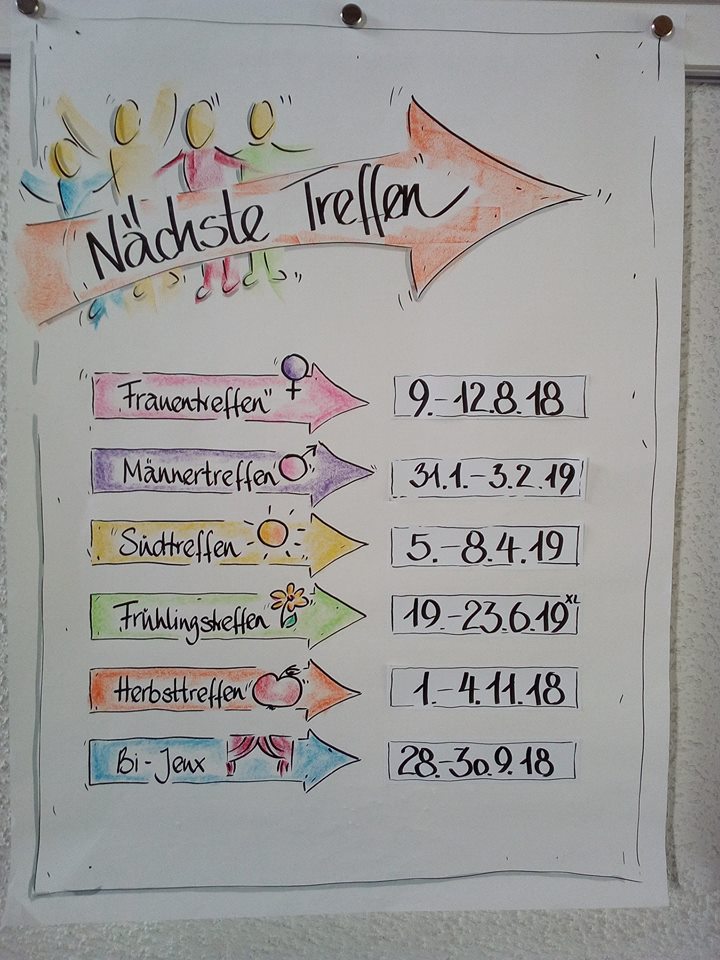 Nächste Treffen
Frauentreffen
9.-12.8.18
Männertreffen
31.1.-3.2.19
Südtreffen
5.-8.4.19
Frühlingstreffen
19.-23.6.19 XL
Herbsttreffen
1.-4.11.18
Bi-Jeux
28.-30.9.18